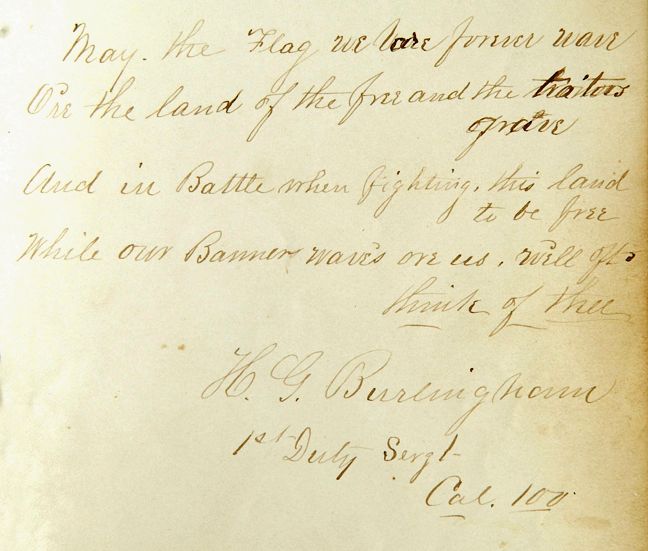 May. the Flag we love forever wave
O're the land of the free and the traitors
grave
And in Battle when fighting, this land
to be free
While our Banner waves ore us, we'll oft
think of thee
H. G. Burlingham
1st Duty Sergt
Cal. 100